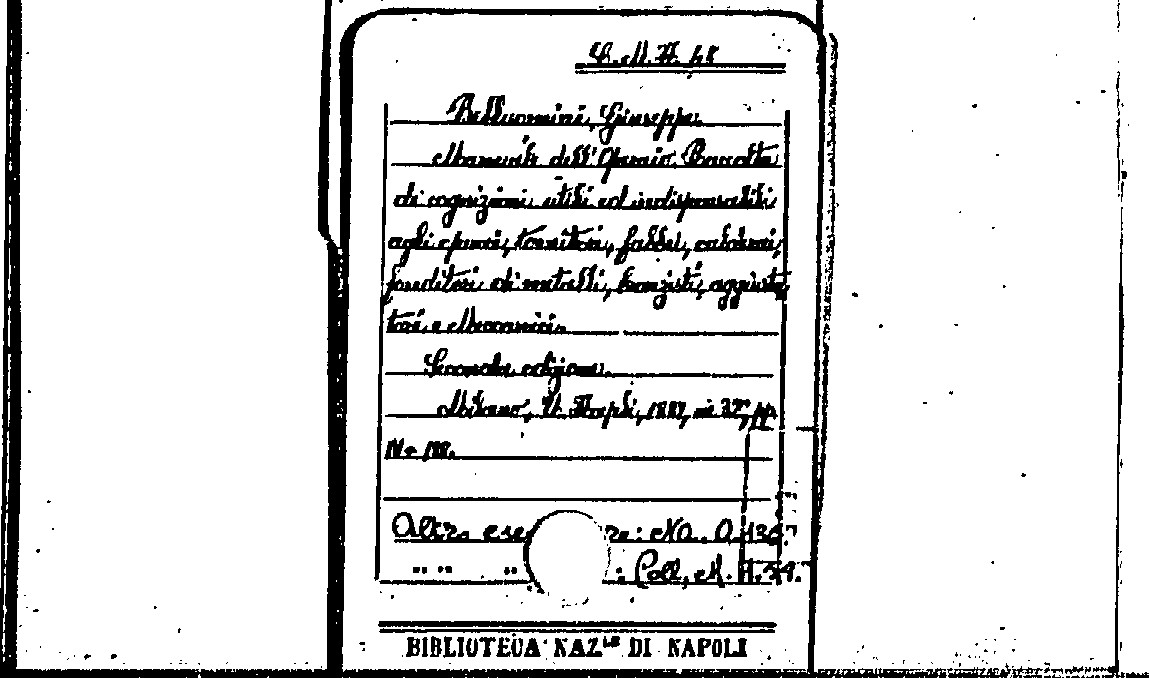 Belluomini, Giuseppe.
Manuale dell'Operaio, Raccolta
di cognizioni utili ed indispensabili
agli operai, tornitori, fabbri, calderai,
fonditori di metalli, bronzisti, aggiusta
tori e Meccanici.
Seconda edizione.
Milano, U. Hoepli, in pp.
Altro : NO. O.
" " " : Coll,
BIBLIOTECA NAZ.LE DI NAPOLI